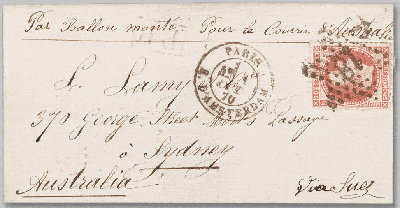 Par Ballon monté. Pour le Courrier d'Australie
PARIS
R. D'AMSTERDAM
70
18
L. Lamy
370 George Street Moore's Passage
à Sydney
Australia
Via Suez